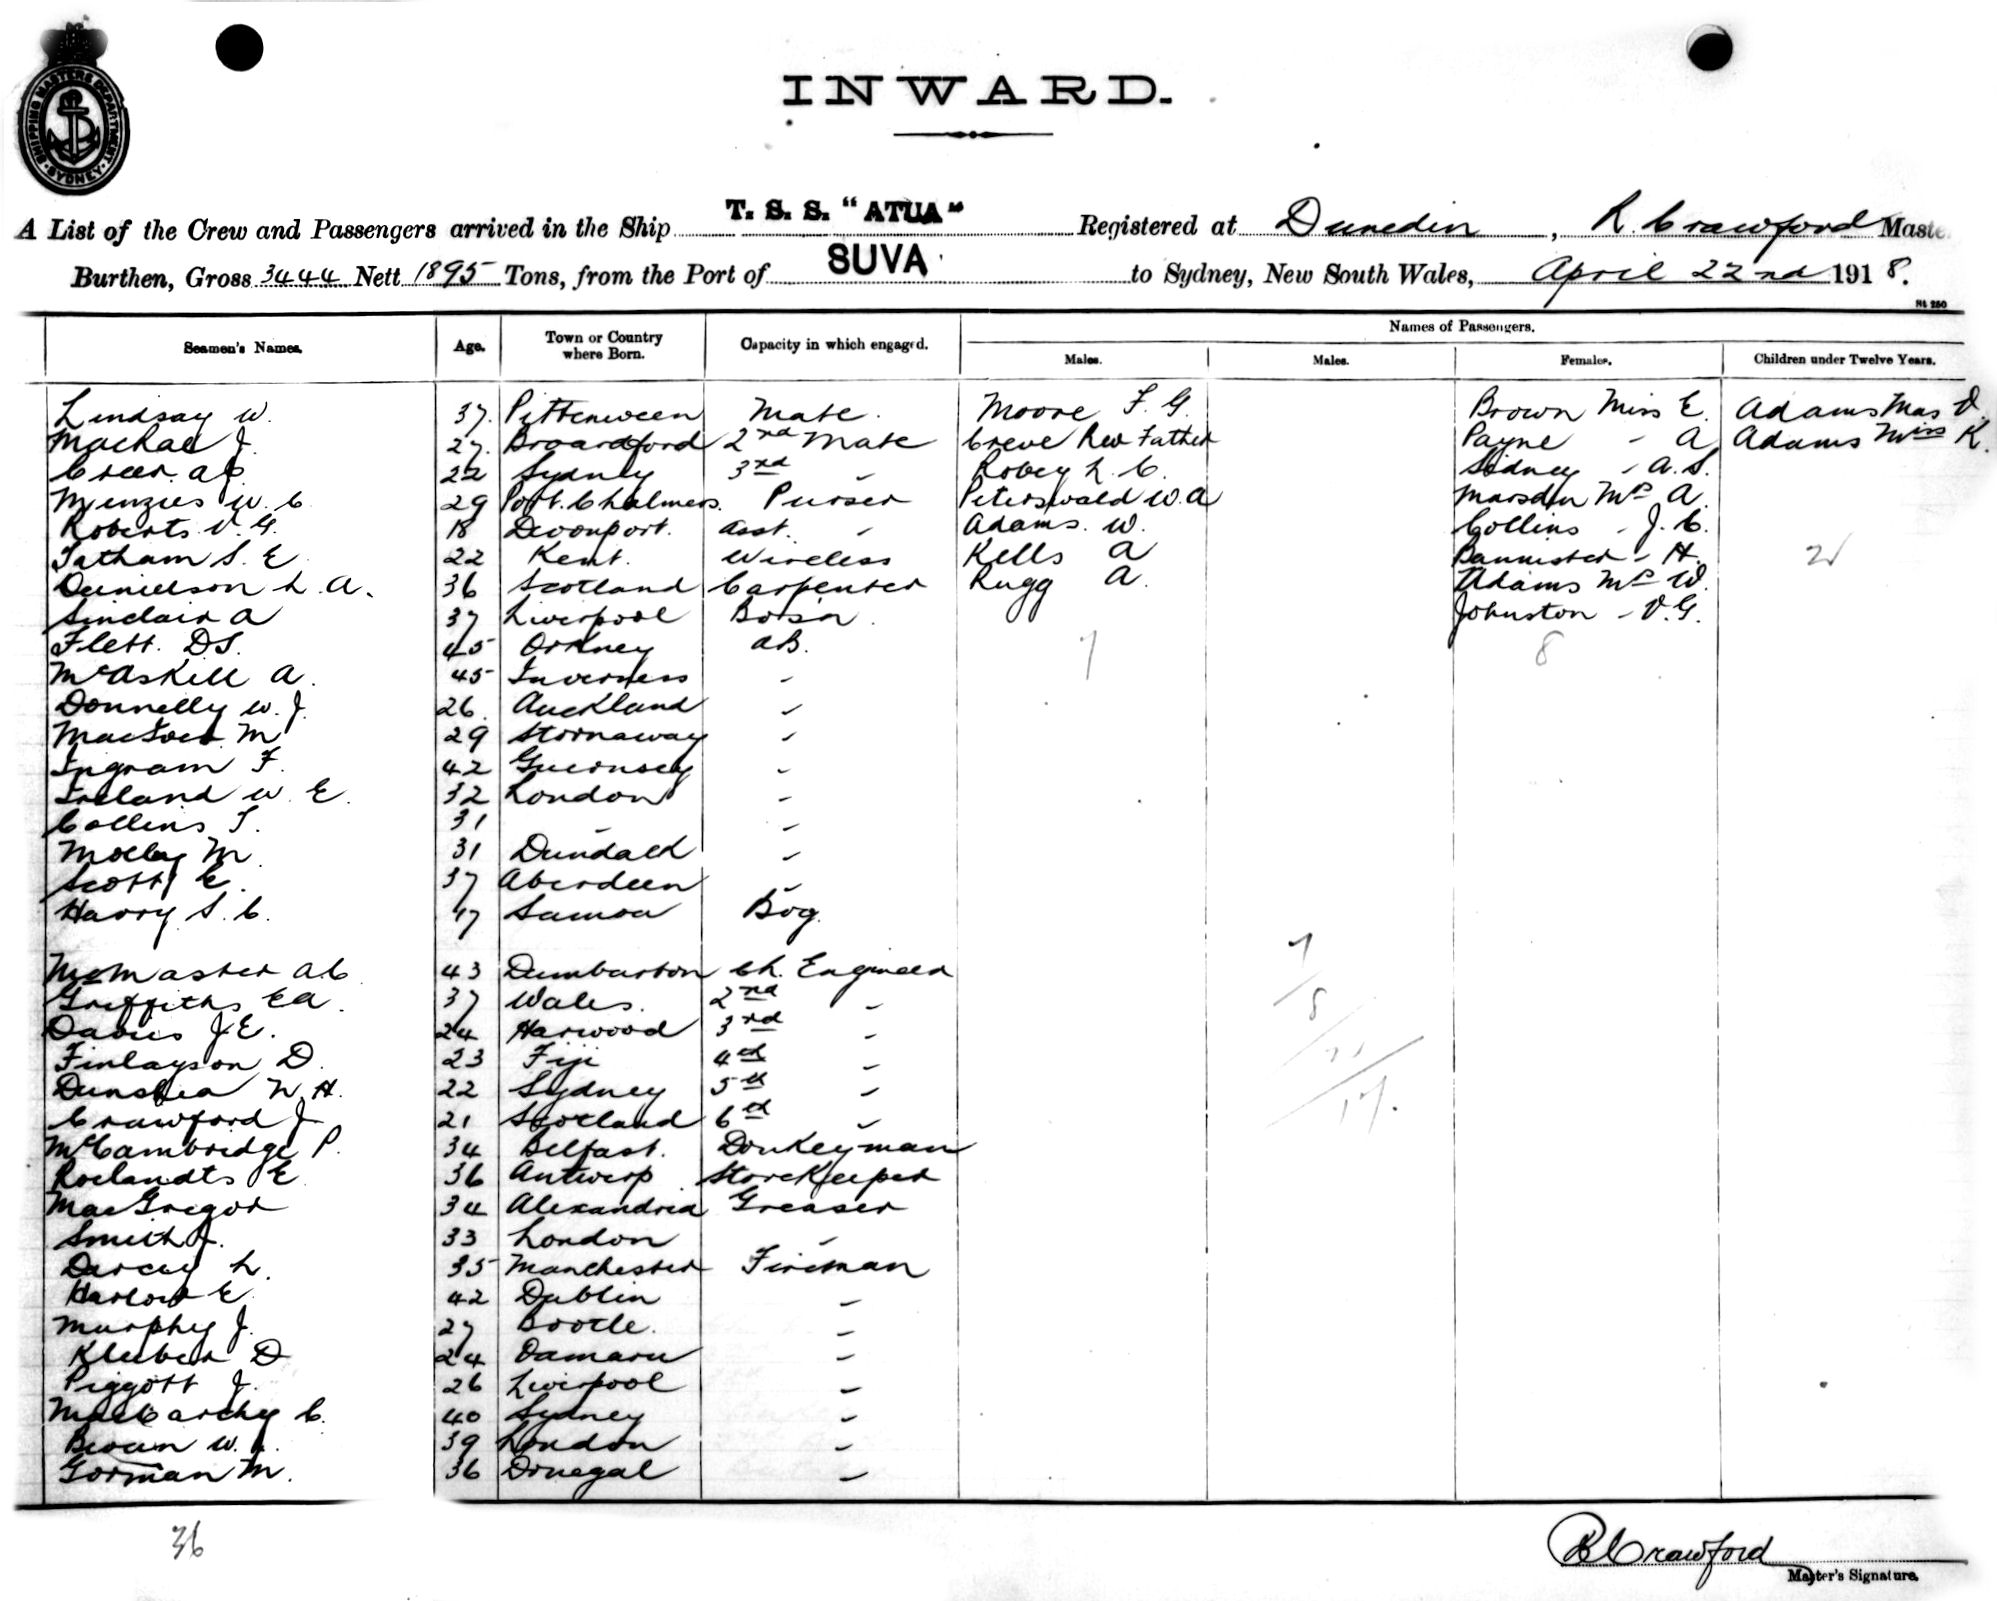 SHIPPING MASTERS DEPARTMENT SYDNEY
INWARD.
A List of the Crew and Passengers arrived in the Ship T. S. S. "ATUA" Registered at Dunedin, R. Crawford Maste
Burthen, Gross 3444 Nett 1895 Tons, from the Port of SUVA to Sydney, New South Wales, April 22nd 1918.
St 250
Seamen's Names. Age. Town or Country where Born. Capacity in which engaged. Names of Passengers.
Males. Males. Females. Children under Twelve Years.
Lindsay W. 37. Pittenween Mate. Moore F. G. Brown Miss E. Adams Mas D.
MacRae J. 27. Broardford 2nd Mate Creve Rev Father Payne - A Adams Miss K.
Creer. A.C. 22 Sydney 3rd - Robey L. C. Sidney - A. S.
Menzies W. C 29 Port. Chalmers. Purser Peterswald W. A Marsden Mrs A.
Roberts V. G. 18 Devonport. Asst. - Adams. W. Collins - J. C.
Tatham S. E 22 Kent. Wireless Kells A Bannister - H. 2
Danielson L. A. 36 Scotland Carpenter Rugg A. Adams Mrs W.
Sinclair A 37 Liverpool Bo'sn. Johnston - V. G.
Flett. D S. 45 Orkney AB. 7 8
McAskill A. 45 Inverness -
Donnelly W. J. 26. Auckland -
M 29 Stornaway -
Ingram F. 42 Guernsey -
Ireland W. E. 32 London -
Collins T. 31 - -
Molloy M. 31 Dundalk -
Scott E. 37 Aberdeen -
Harry S. C. 17 Samoa Boy.
McMaster A. C 43 Dumbarton Ch. Engineer 7
Griffiths E A. 37 Wales. 2nd - 8
Davies J. E. 24 Harwood 3rd -
Finlayson D. 23 Fiji 4th -
Dunshea W. H. 22 Sydney 5th - 17.
Crawford J 21 Scotland 6th -
McCambridge P. 34 Belfast. Donkeyman
Roelandts E 36 Antwerp Storekeeper
MacGregor 34 Alexandria Greaser
Smith J. 33 London -
Darcey L. 35 Manchester Fireman
Harlow E. 42 Dublin -
Murphy J. 27 Bootle. -
Kleiber D 24 Oamaru -
Piggott J. 26 Liverpool -
MacCarthy C. 40 Sydney -
Brown W. 39 London -
Gorman M. 36 Donegal -
36
R Crawford
Master's Signature.